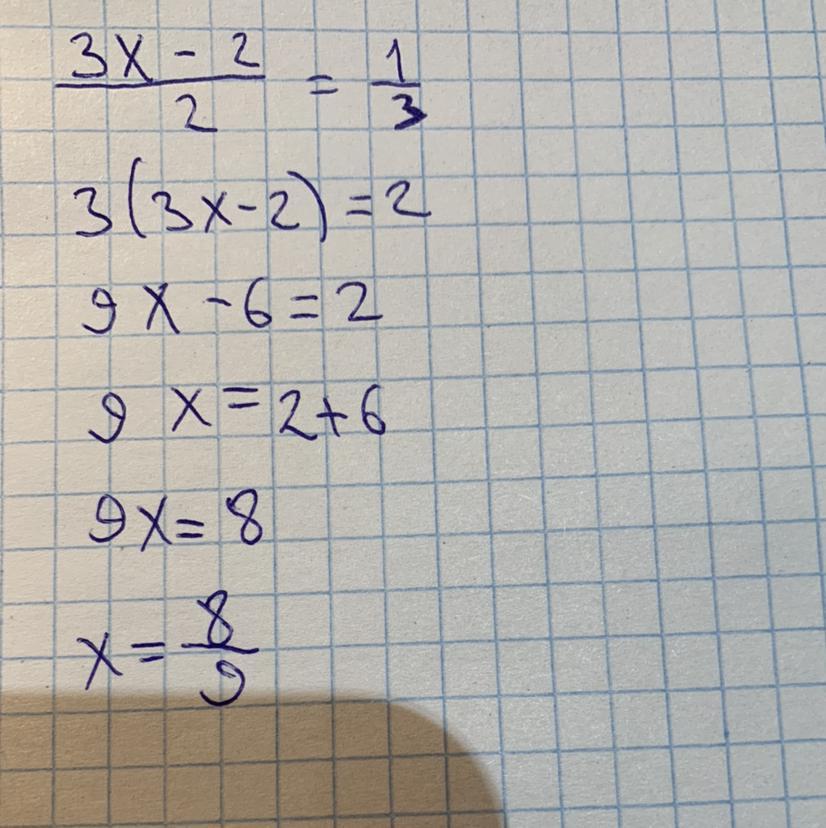 (3x - 2)/2 = 1/3
3(3x-2)=2
9x - 6=2
9 x = 2+6
9x= 8
x = 8/9